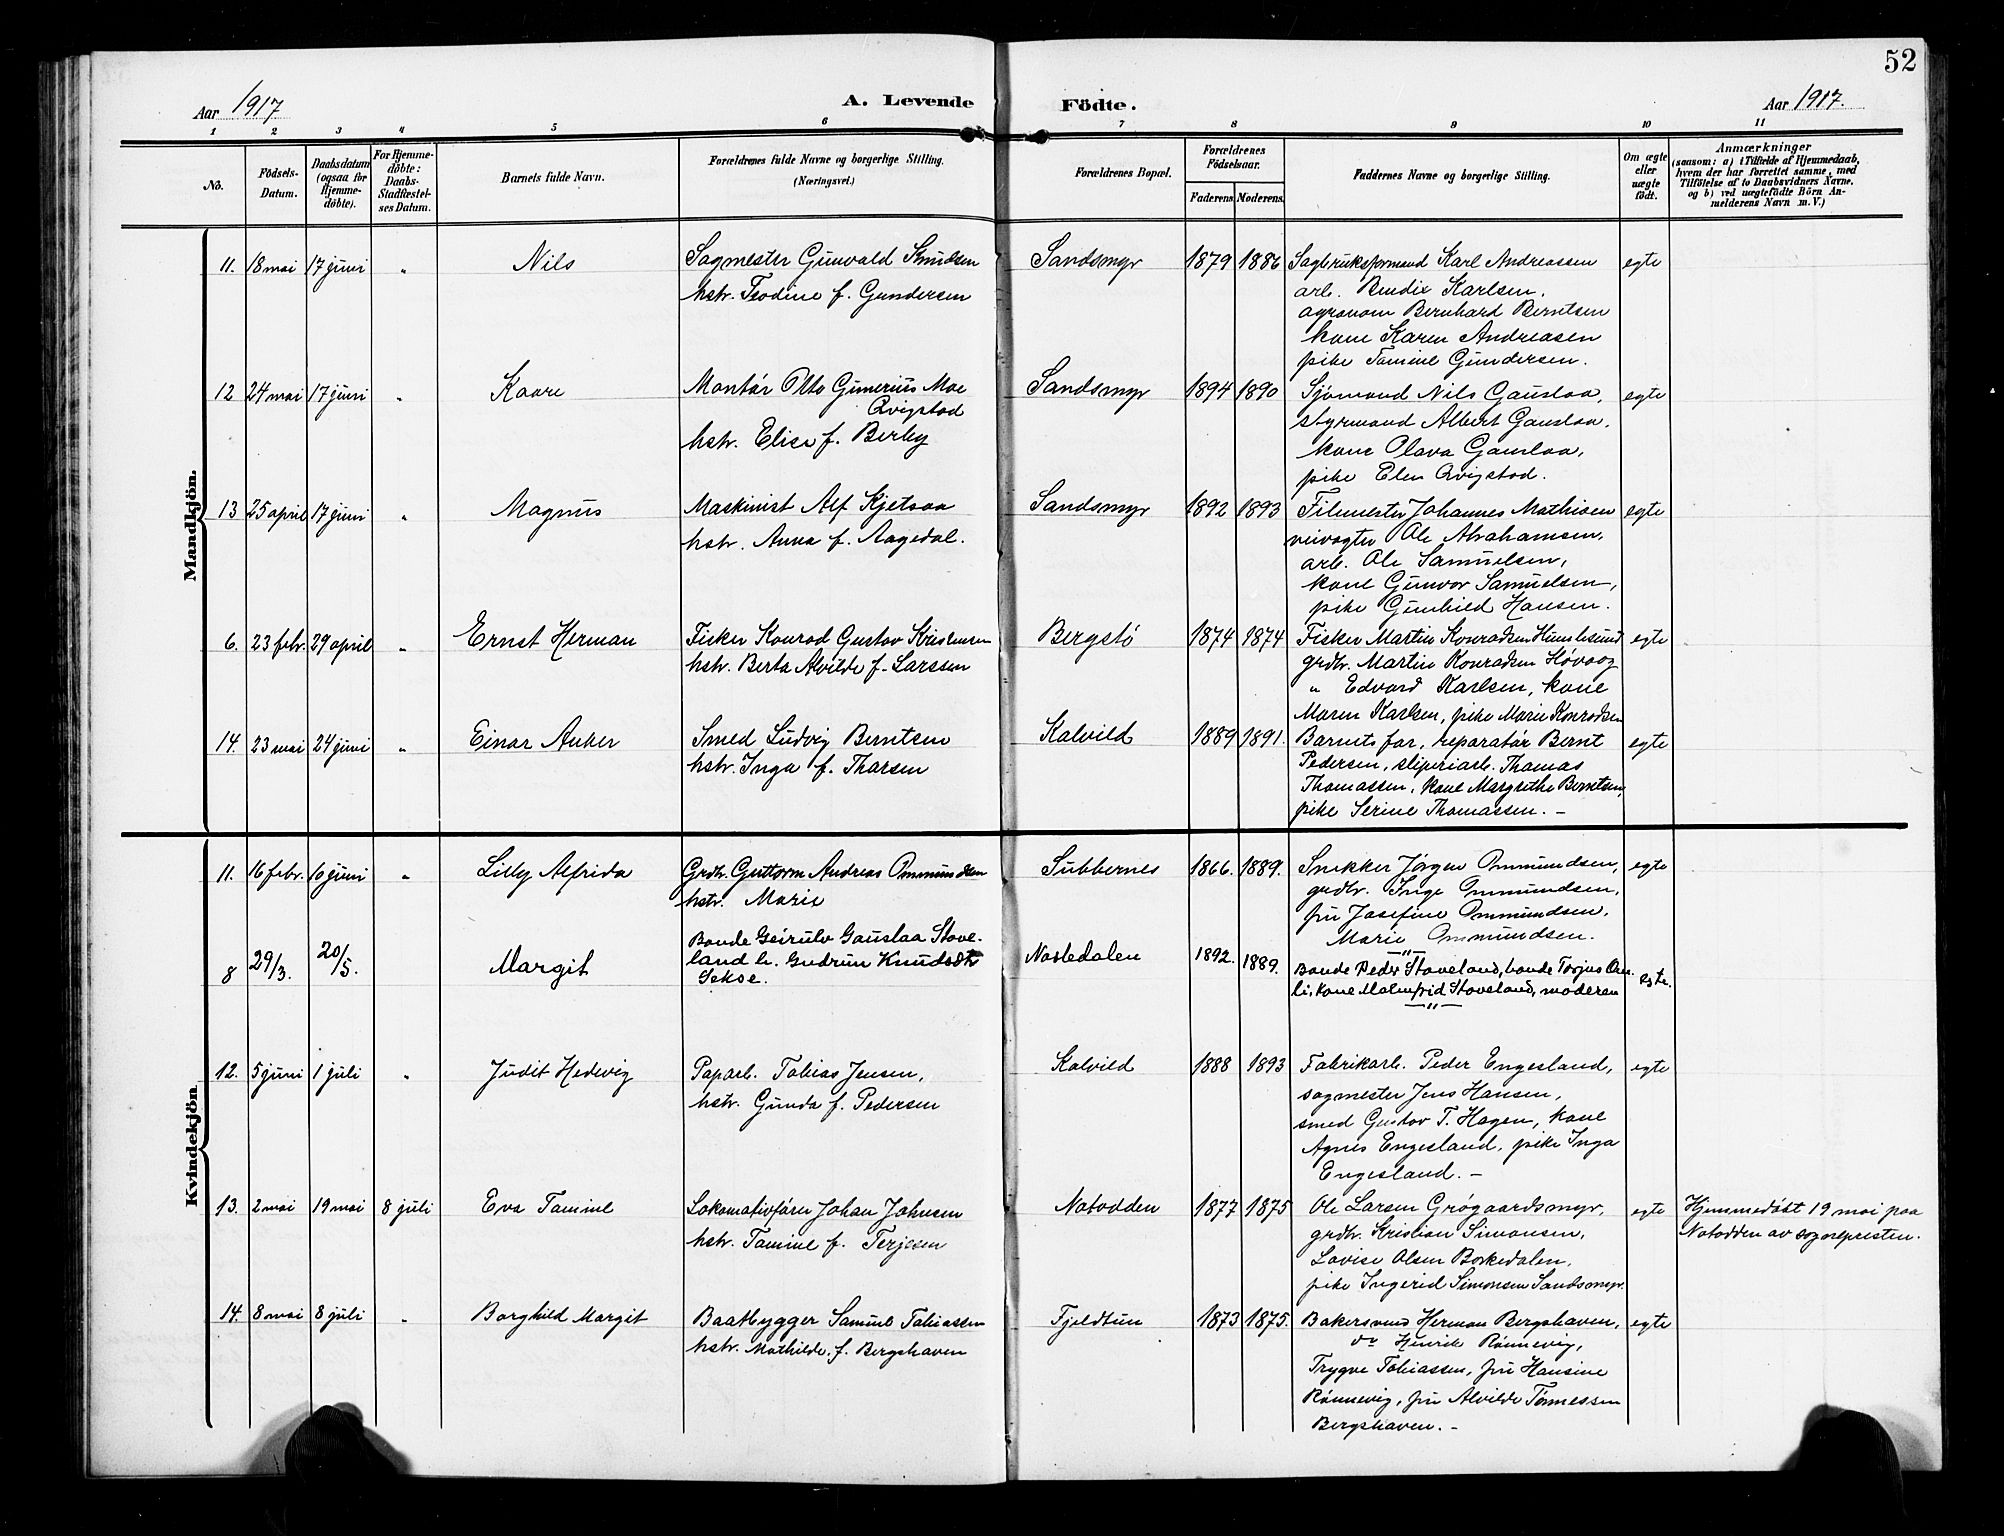 52
Aar 1917
A. Levende Födte.
Aar 1917.
1 2 3 4 5 6 7 8 9 10 11
No.
Födsels-Datum.
Daabsdatum (ogsaa for Hjemme-döbte).
For Hjemme-döbte: Daabs-Stadfæstel-ses Datum.
Barnets fulde Navn.
Forældrenes fulde Navne og borgerlige Stilling. (Næringsvei.)
Forældrenes Bopæl.
Forældrenes Födselsaar.
Faderens Moderens.
Faddernes Navne og borgerlige Stilling.
Om ægte eller uægte födt.
Anmærkninger
(saasom: a) i Tilfælde af Hjemmedaab,
hvem der har forrettet samme, med
Tilföielse af to Daabsvidners Navne,
og b) ved uægtefödte Börn An-
melderens Navn m. V.)
Mandkjön.
11. 18 mai 17 juni " Nils
Sagmester Gunvald Knudsen
hstr. Teodine f. Gundersen
Sandsmyr 1879 1886
Sagbruksformand Karl Andreassen
arb. Bendix Karlsen,
agronom Bernhard Berntsen
kone Karen Andreasen
pike Tomine Gundersen.
egte
12 24 mai 17 juni " Kaare
Montør Otto Gunerius Moe
Qvigstad
hstr. Elise f. Berby
Sandsmyr 1894 1890
Sjömand Nils Gauslaa,
styrmand Albert Gauslaa,
kone Olava Gauslaa,
pike Elen Qvigstad.
egte
13 25 april 17 juni " Magnus
Maskinist Alf Kjetsaa
hstr. Anna f. Aagedal.
Sandsmyr 1892 1893
Filmester Johannes Mathisen
veivogter Ole Abrahamsen,
arb. Ole Samuelsen,
kone Gunvor Samuelsen,
pike Gunhild Hansen.
egte
6. 23 febr. 29 april " Ernst Herman
Fisker Konrad Gustav Kristensen
hstr. Berta Alvilde f. Larssen
Bergstö 1874 1874
Fisker Martin Konradsen Humlesund
grdbr. Martin Konradsen Høvaag
" Edvard Karlsen, kone
Maren Karlsen, pike Marie Konradsen
egte
14. 23 mai 24 juni " Einar Anker
Smed Ludvig Berntsen
hstr. Inga f. Tharsen
Kalvild 1889 1891.
Barnets far, reparatør Bernt
Pedersen, sliperiarb. Thomas
Thomassen, kone Margrethe Berntsen,
pike Serine Thomassen. –
egte
Kvindekjön.
11. 16 febr. 6 juni " Lilly Alfrida
Grdbr. Guttorm Andreas Ommundsen
hstr. Marie
Subbernes 1866. 1889.
Snekker Jørgen Ommundsen,
grdbr. Inge Ommundsen,
fru Josefine Ommundsen,
Marie Ommundsen.
egte
8 29/3. 20/5. Margit
Bonde Geirulv Gauslaa Stove-
land h. Gudrun Knudsdtr
Sekse.
Nosledalen 1892. 1889.
Bonde Peder Stoveland, bonde Torjus Om-
li, kone Malmfrid Stoveland, moderen
— " —
egte.
12. 5 juni 1 juli " Judit Hedvig
Paparb. Tobias Jensen,
hstr. Gunda f. Pedersen
Kalvild 1888 1893
Fabrikarb. Peder Engesland,
sagmester Jens Hansen,
smed Gustav T. Hagen, kone
Agnes Engesland, pike Inga
Engesland. –
egte
13. 2 mai 19 mai 8 juli Eva Tomine
Lokomotivfører Johan Johnsen
hstr. Tomine f. Terjesen
Notodden 1877 1875
Ole Larsen Grøgaardsmyr,
grdbr. Kristian Simonsen,
Lovise Olsen Borkedalen,
pike Ingerid Simonsen Sandsmyr.
egte
Hjemmedøbt 19 mai paa
Notodden av sognepresten.
14. 8 mai 8 juli " Borghild Margit
Baatbygger Samuel Tobiassen
hstr. Mathilde, f. Bergshaven
Fjeldtun 1873 1875.
Bakersvend Herman Bergshaven,
do Henrik Rønnevig,
Trygve Tobiassen, fru Hansine
Rønnevig, fru Alvilde Tønnessen
Bergshaven. –
egte